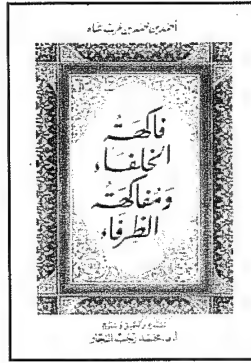 أحمد بن محمد بن عرب شاه
فاكهة
الخلفاء
ومفاكهة
الظرفاء
تقديم وتحقيق وشرح
أ.د. محمد رجب النجار